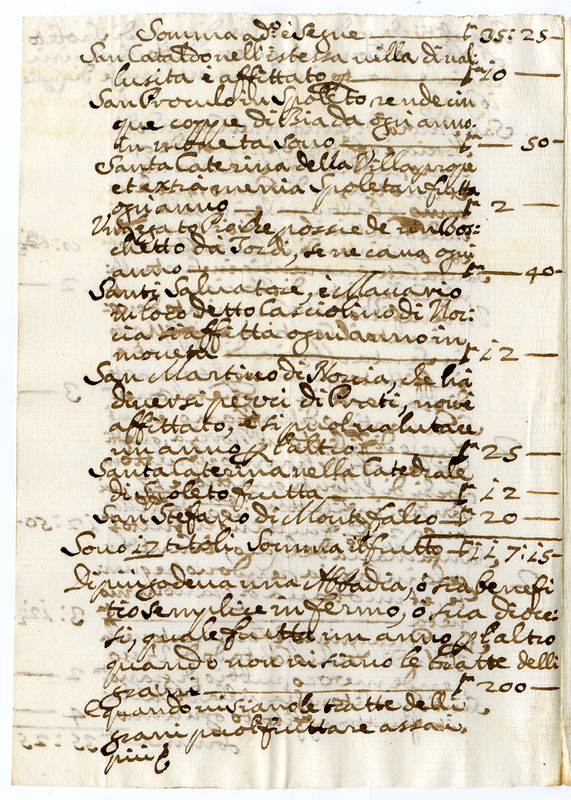 Somma ad.º è segue — ƒ 35: 25 —
San Cataldo nell'istessa villa di val
lusita è affittato — ƒ 10 —
San Proculo in Spoleto, rende cin
que coppe di Biada ogni anno.
in moneta sono — ƒ — 50 —
Santa Caterina della Villa
et extra menia Spoletan frutta
ogni anno — ƒ 2 —
possiede un Bos:
chetto da Tordi, se ne cava ogni
anno — ƒ — 40 —
Santi Salvatore, è Macario
in loco detto Casciolino di Nor:
cia si affitta ogni anno in
moneta — ƒ 12 —
San Martino di Norcia, che hà
diversi pezzi di Prati, non è
affittato, è si può valutare
un anno p l'altro — ƒ 25 —
Santa Caterina nella Catedrale
di Spoleto frutta — ƒ 12 —
San Stefano di Monte falco — ƒ 20 —
Sono 12 titoli, Somma il frutto — ƒ 117: 15 —
Di più godeva una Abbadia, ò sia benefi
tio semplice in fermo, ò sua dioce:
si, quale frutta un anno p l'altro
quando non vi siano le tratte delli
grani — ƒ 200 —
E quando vi siano le tratte delli
grani può fruttare assai
più